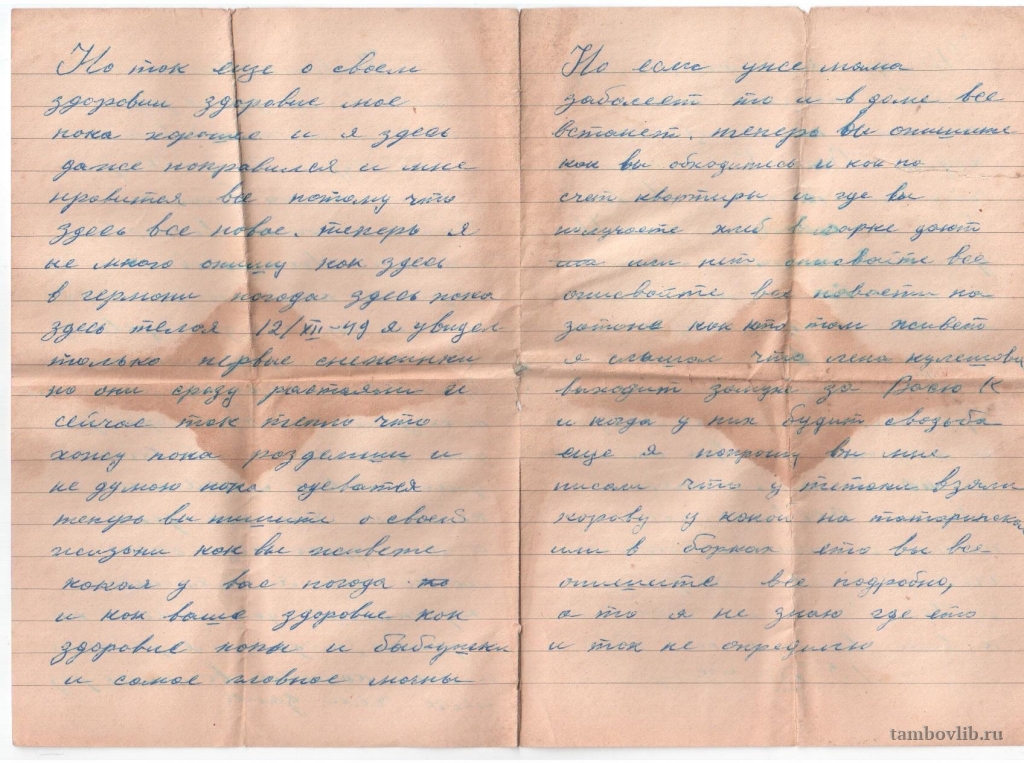 Но так еще о своем
здоровии здоровие мое
пока хорошее и я здесь
даже поправился и мне
нравится все потому что
здесь все новое. теперь я
не много опишу как здесь
в германи погода здесь пока
здесь теплая 12/XII-49 я увидел
только первые снежинки
но они сразу растаяли и
сейчас так тепло что
хожу пока розделши и
не думою пока одеватся
теперь вы пишити о своей
жизони как вы живете
какая у вас погода
и как ваше здоровие как
здоровие папи и бабушки
и самое главное мамы
Но если уже мама
заболеет то и в доме все
встанет. теперь вы опишите
как вы обходитесь и как на
счет квартиры и где вы
получаете хлеб в ларке дают
или нет. описвайте все
описвайте все новости на
затоне как кто там живет
я слышал что лена кулешова
выходит замуж за Васю К
и когда у них будит свадьба
еще я попрошу вы мне
писали что у титоки взяли
корову у какой на татаринска
или в борках ето вы все
опишите все подробно,
а то я не знаю где ето
и так не определю
tambovlib.ru